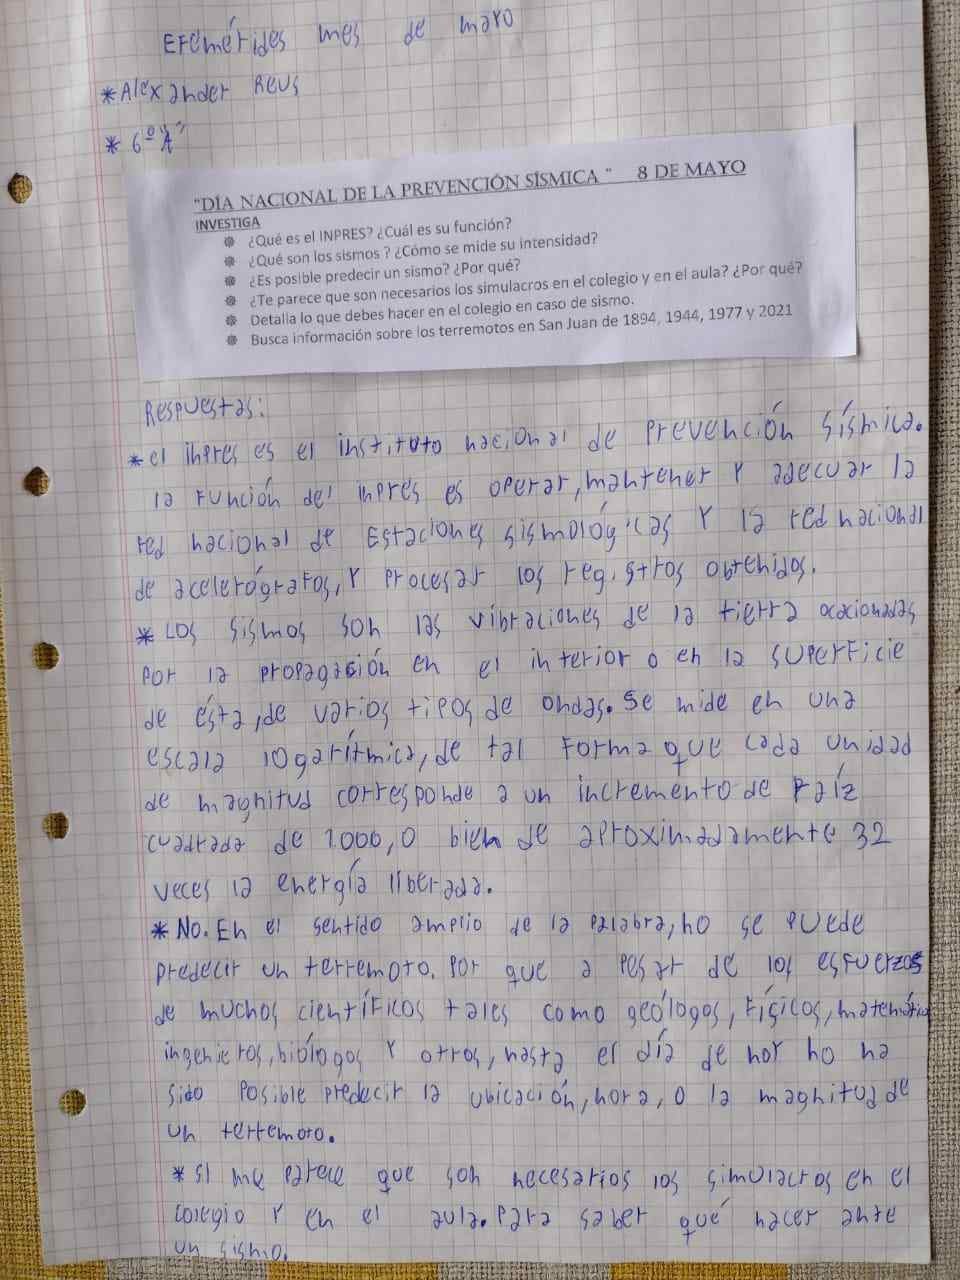 Efemérides mes de mayo
* Alexander Reus
* 6º "A"
"DÍA NACIONAL DE LA PREVENCIÓN SÍSMICA " 8 DE MAYO
INVESTIGA
¿Qué es el INPRES? ¿Cuál es su función?
¿Qué son los sismos ? ¿Cómo se mide su intensidad?
¿Es posible predecir un sismo? ¿Por qué?
¿Te parece que son necesarios los simulacros en el colegio y en el aula? ¿Por qué?
Detalla lo que debes hacer en el colegio en caso de sismo.
Busca información sobre los terremotos en San Juan de 1894, 1944, 1977 y 2021
Respuestas:
* el inpres es el instituto nacional de Prevención sísmica.
la función del inpres es operar, mantener y adecuar la
red nacional de Estaciones sismológicas y la red nacional
de acelerógrafos, y procesar los registros obtenidos.
* Los sismos son las vibraciones de la tierra ocacionadas
por la propagación en el interior o en la superficie
de ésta, de varios tipos de ondas. se mide en una
escala logarítmica, de tal forma que cada unidad
de magnitud corresponde a un incremento de raíz
cuadrada de 1.000, o bien de aproximadamente 32
veces la energía liberada.
* No. En el sentido amplio de la palabra, no se puede
predecir un terremoto. Por que a pesar de los esfuerzos
de muchos científicos tales como geólogos, físicos, matemático
ingenieros, biólogos y otros, hasta el día de hoy no ha
sido posible predecir la ubicación, hora, o la magnitud de
un terremoto.
* si me parece que son necesarios los simulacros en el
colegio y en el aula. Para saber qué hacer ante
un sismo.